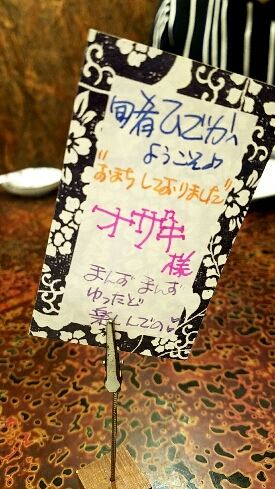 旬肴ひでかへ
ようこそ♪
"おまちしておりました"
オサ年
様
まんずまんず
ゆったど
楽しんでの♡